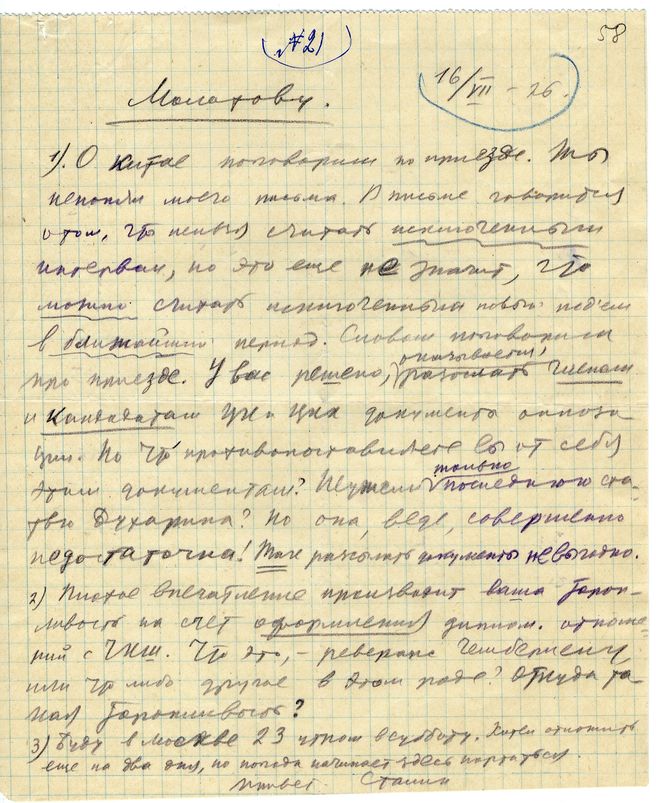 № 21
58
16/VII - 26.
Молотову.
1). О Китае поговорим по приезде. Ты
не понял моего письма. В письме говорится
о том, что нельзя считать исключенным
интервал, но это еще не значит, что
можно считать исключенным новый под'ем
в ближайший период. Словом поговорим
при приезде. У вас решено, оказывается,
разослать членам
и кандидатам ЦК и ЦКК документы оппози-
ции. Но что противопоставляете вы от себя
этим документам? Неужели только последнюю ста-
тью Бухарина? Но она, ведь, совершенно
недостаточна! Так рассылать документы невыгодно.
2) Плохое впечатление производит ваша тороп-
ливость на счет оформления диплом. отноше-
ний с Чкш. Что это, – реверанс Чемберлену
или что либо другое в этом роде? Откуда та-
кая торопливость?
3) Буду в Москве 23 утром в субботу. Хотел отложить
еще на два дня, но погода начинает здесь портиться.
Привет. Сталин